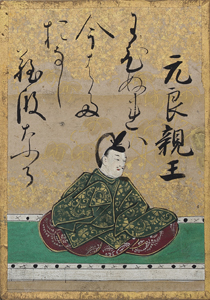 元良親王
わひぬれは
今はた
おなし
難波なる